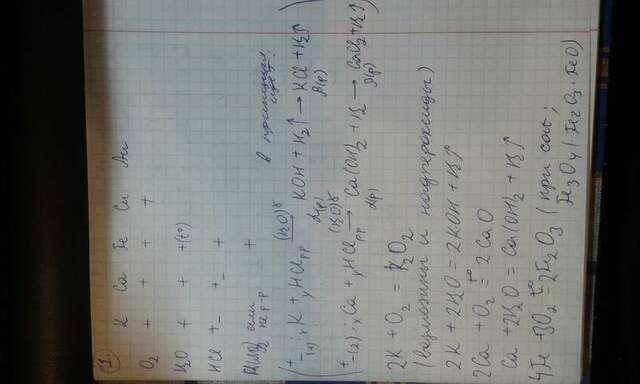 1
K Ca Fe Cu Au
O₂ + + + +
H₂O + + +(t°)
HCl +- +- +
или +
не р-р в принципе
(+- (1) : K + HCl рр (H₂O) → KOH + H₂↑ → KCl + H₂↑
(+- (2) : Ca + HCl рр (H₂O) → Ca(OH)₂ + H₂ → CaCl₂ + H₂↑
2K + O₂ = K₂O₂
(возможны и надпероксиды)
2K + 2H₂O = 2KOH + H₂↑
2Ca + O₂ =t° 2CaO
Ca + 2H₂O = Ca(OH)₂ + H₂↑
4Fe + 3O₂ =t° 2Fe₂O₃ (при
Fe₃O₄ / Fe₂O₃·FeO)